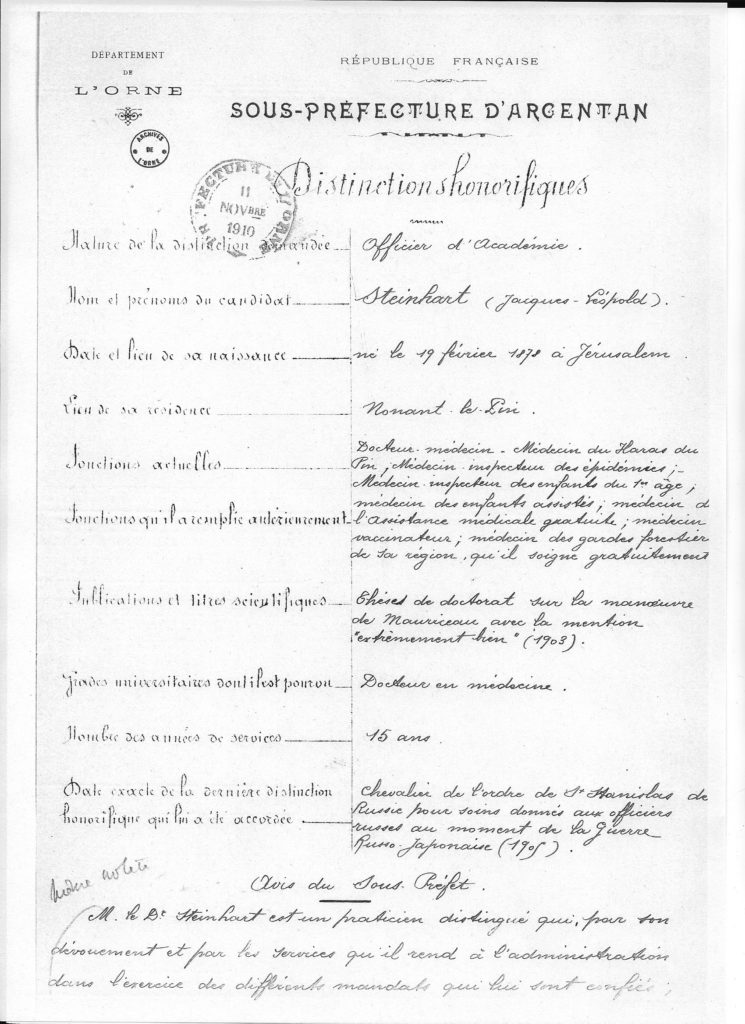 DÉPARTEMENT
DE
L'ORNE
RÉPUBLIQUE FRANÇAISE
SOUS-PRÉFECTURE D'ARGENTAN
ARCHIVES
DE
L'ORNE
PRÉFECTURE DE L'ORNE
11
NOVBRE
1910
Distinctions honorifiques
Nature de la distinction demandée Officier d'Académie.
Nom et prénoms du candidat Steinhart (Jacques-Léopold).
Date et lieu de sa naissance né le 19 février 1878 à Jérusalem.
Lieu de sa résidence Nonant-le-Pin.
Fonctions actuelles
Fonctions qu'il a remplie antérieurement
Docteur-médecin - Médecin du Haras du
Pin; Médecin-inspecteur des épidémies;-
Médecin-inspecteur des enfants du 1er âge;
médecin des enfants assistés; médecin d
l'assistance médicale gratuite; médecin
vaccinateur; médecin des gardes forestier
de sa région, qu'il soigne gratuitement
Publications et titres scientifiques Thèses de doctorat sur la manœuvre
de Mauriceau avec la mention
"extrêmement bien" (1903).
Grades universitaires dont il est pourvu Docteur en médecine.
Nombre des années de services 15 ans.
Date exacte de la dernière distinction
honorifique qui lui a été accordée
Chevalier de l'ordre de St Stanislas de
Russie pour soins donnés aux officiers
russes au moment de la Guerre
Russo-Japonaise (1905).
Avis du Sous-Préfet.
M. le Dr Steinhart est un praticien distingué qui, par son
dévouement et par les services qu'il rend à l'administration
dans l'exercice des différents mandats qui lui sont confiés;